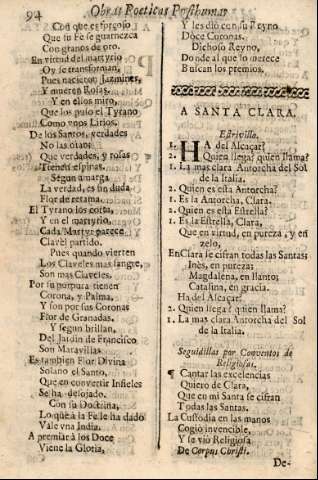 94 Obras Poeticas Posthumas
Con que es preciso
Que su Fè se guarnezca
Con granos de oro.
En virtud del martyrio
Oy se transforman,
Pues nacieron Jazmines,
Y mueren Rosas.
Y en ellos miro,
Que los puso el Tyrano
Como vnos Lirios.
De los Santos, verdades
No las otans
Que verdades, y rosas
Tienen espinas.
Segun amarga
La verdad, es sin duda
Flor de retama.
El Tyrano los corta,
Y en el martyrio,
Cada Martyr parece
Clavel partido.
Pues quando vierten
Los Claveles mas sangre,
Son mas Claveles.
Por su purpura tienen
Corona, y Palma,
Y son por sus Coronas
Flor de Granadas.
Y segun brillan,
Del Jardin de Francisco
Son Maravillas
Es tambien Flor Divina
Solano el Santo,
Que en convertir Infieles
Se ha desojado.
Con su Doctrina,
Lo que à la Fe le ha dado
Vale vna India.
A premiar à los Doce
Viene la Gloria,
Y les diò con su Reyno
Doce Coronas.
Dichoso Reyno,
Donde al que lo merece
Buscan los premios.
A SANTA CLARA.
Estrivillo.
1. HA del Alcaçar?
2. Quien llega? quien llama?
1. La mas clara Antorcha del Sol
de la Italia.
2. Quien es esta Antorcha?
1. Es la Antorcha, Clara.
2. Quien es esta Estrella?
1. Es la Estrella, Clara,
Que en virtud, en pureza, y en
zelo,
En Clara se cifran todas las Santas:
Inès, en pureza;
Magdalena, en llanto;
Catalina, en gracia.
Ha del Alcaçar?
2. Quien llega? quien llama?
1. La mas clara Antorcha del Sol
de la Italia.
Seguidillas por Conventos de
Religiosas.
¶ Cantar las excelencias
Quiero de Clara,
Que en mi Santa se cifran
Todas las Santas.
La Custodia en las manos
Cogiò invencible,
Y se viò Religiosa
De Corpus Christi.
De-